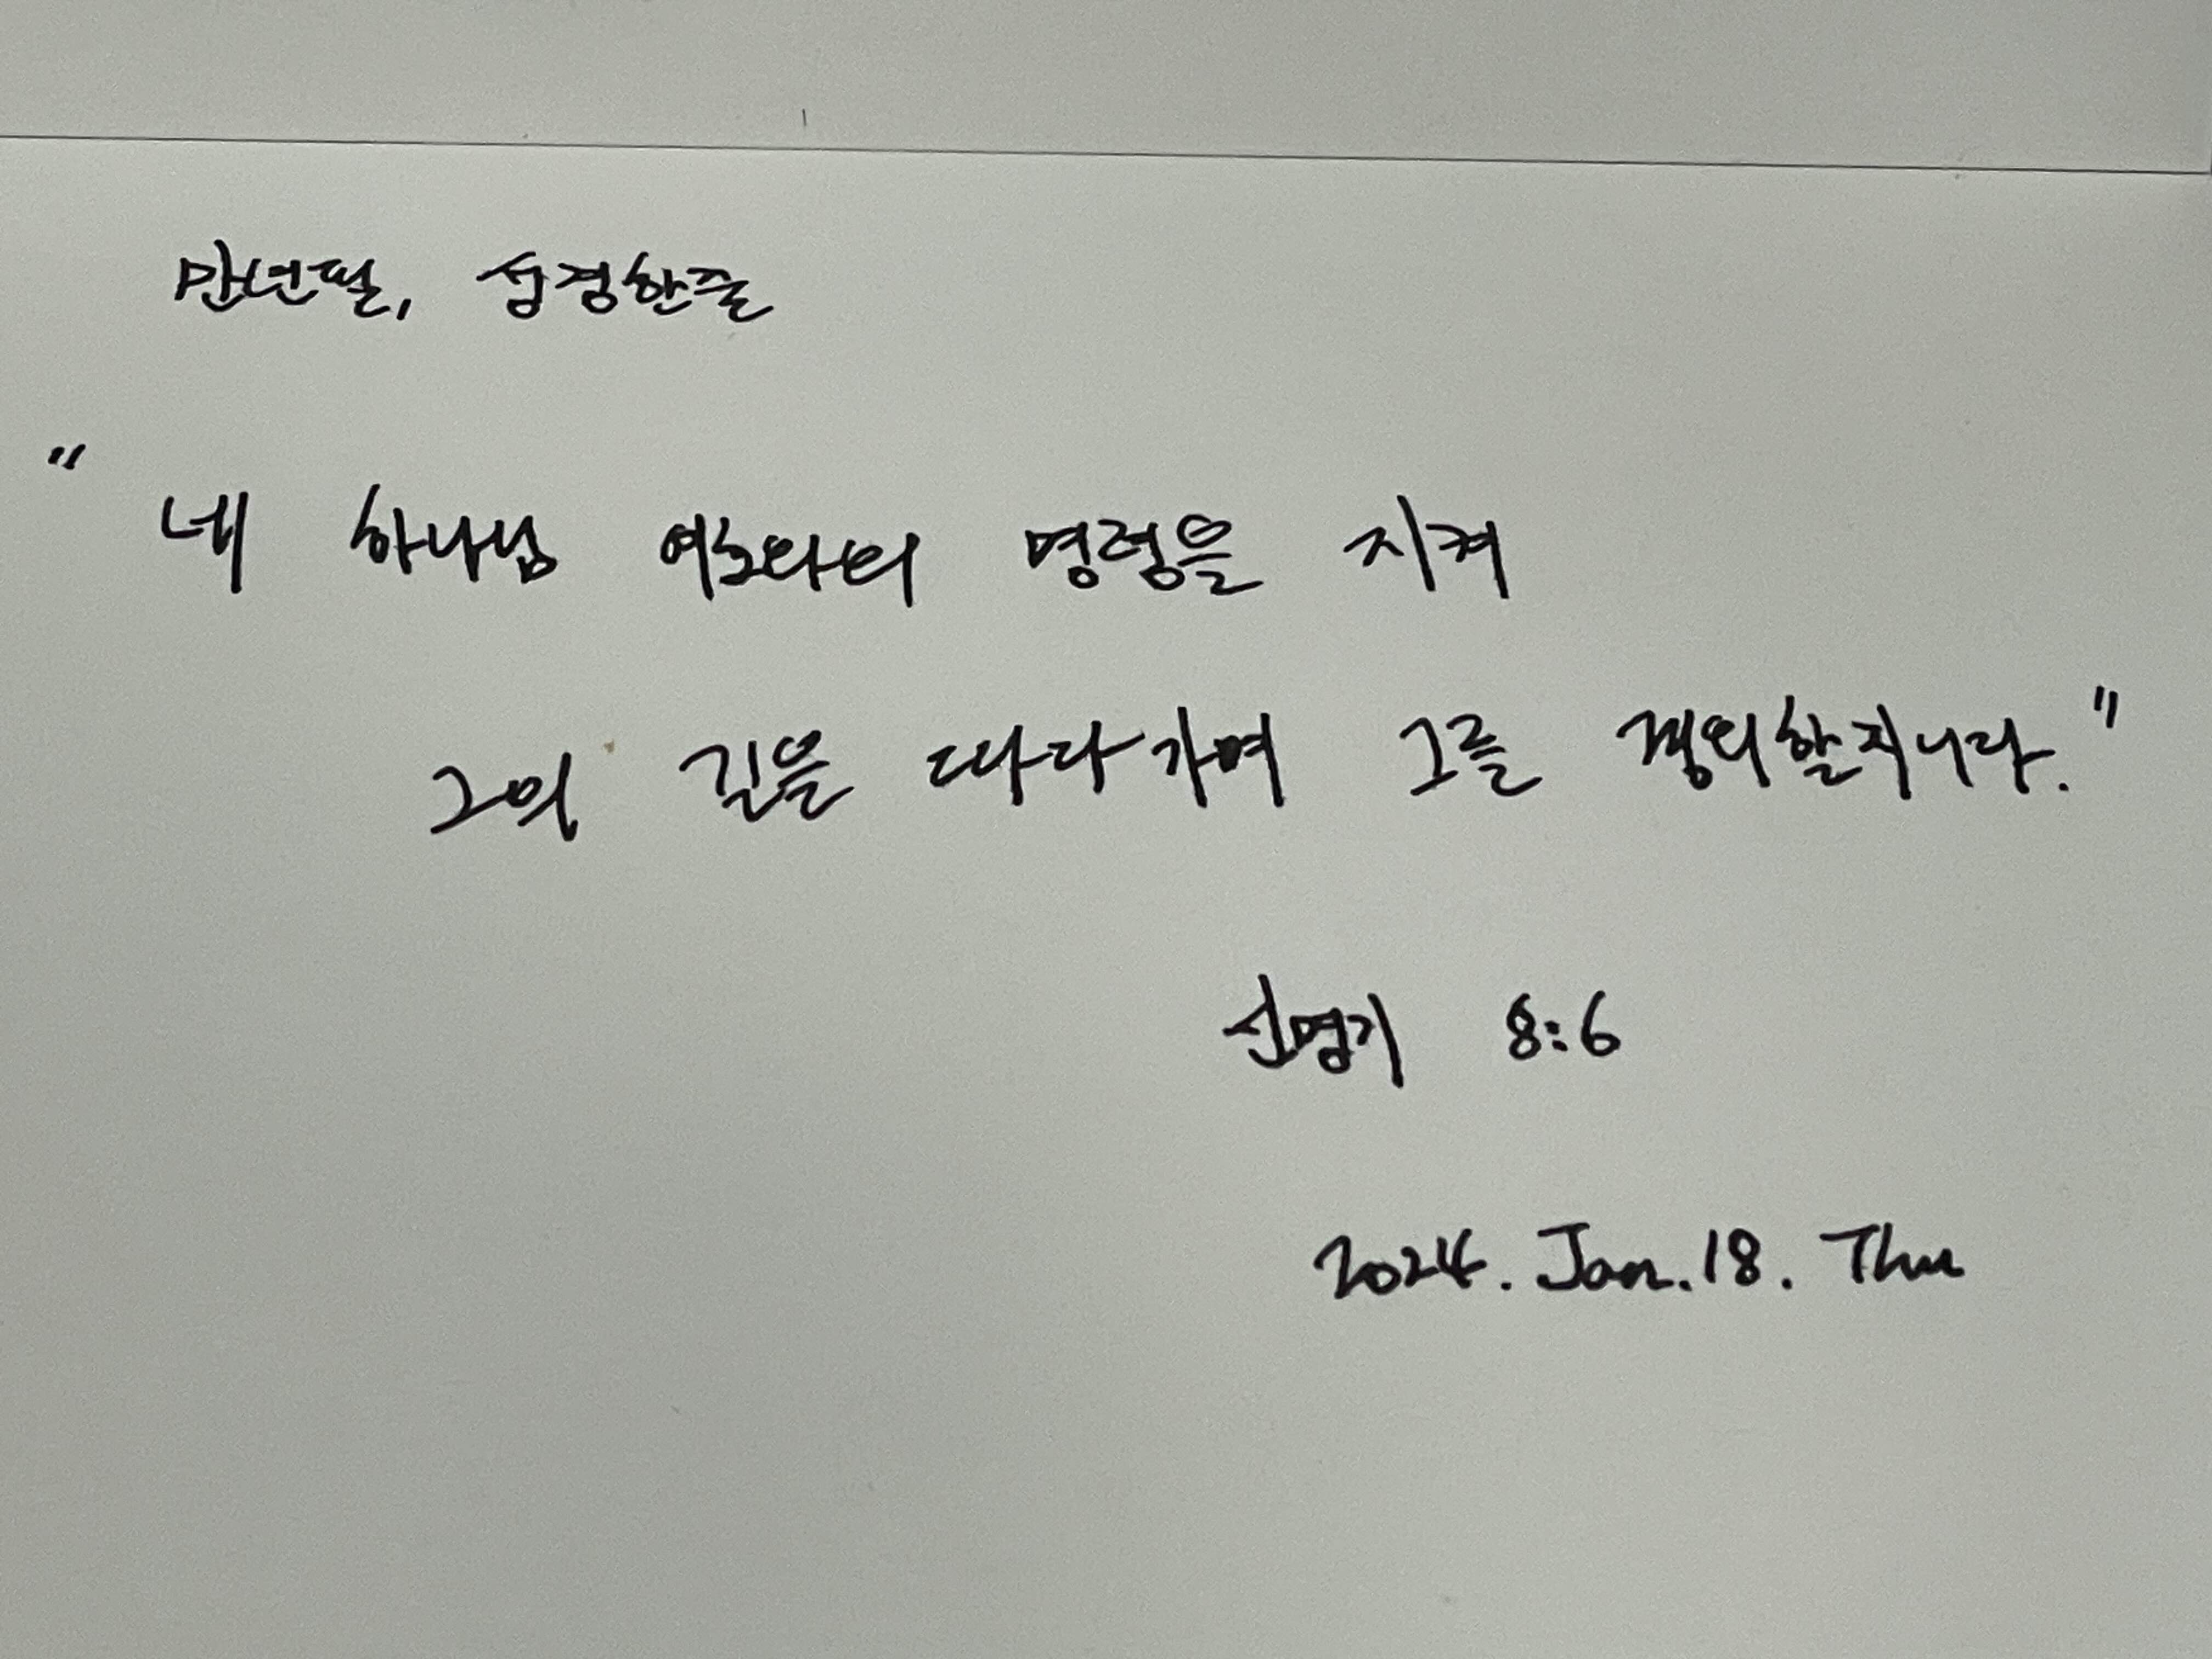 만년필, 성경한줄
"네 하나님 여호와의 명령을 지켜
그의 길을 따라가며 그를 경외할지니라."
신명기 8:6
2024. Jan. 18. Thu